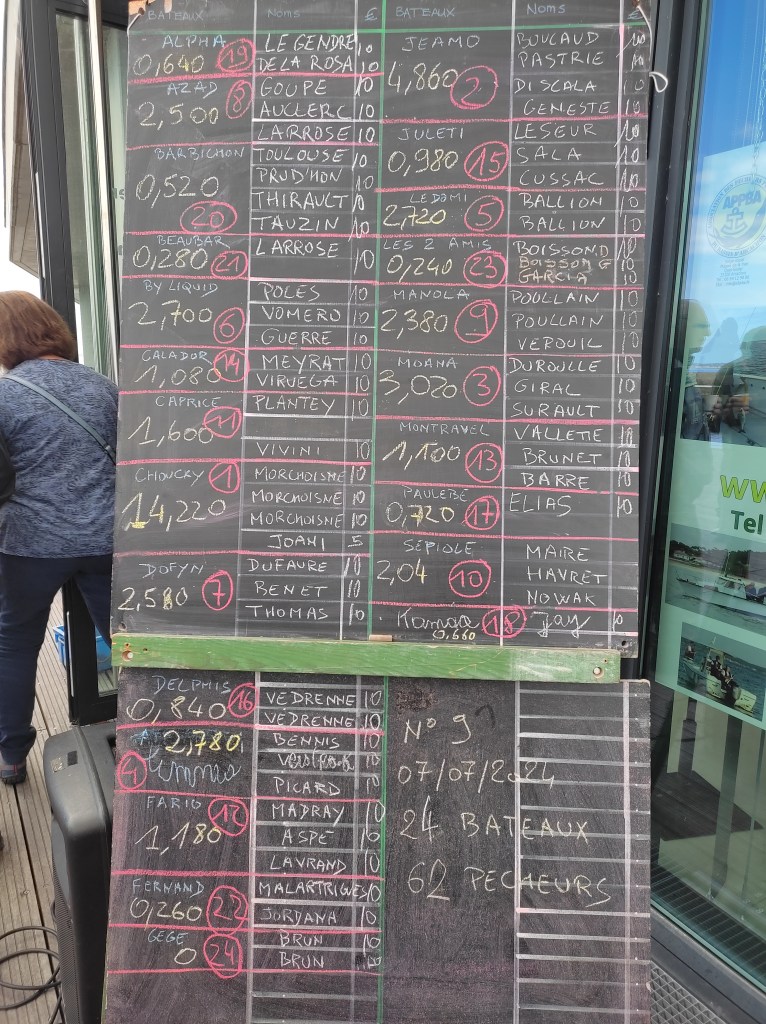 BATEAUX NOMS €
ALPHA LE GENDRE 10
0,640 19 DE LA ROSA 10
AZAD GOUPE 10
2,500 8 AUCLERC 10
LARROSE 10
BARBICHON TOULOUSE 10
0,520 PRUD'HON 10
THIRAULT 10
20 TAUZIN 10
BEAUBAR LARROSE 10
0,280 21
BY LIQUID POLES 10
2,700 6 VOMERO 10
GUERRE 10
CALADOR 14 MEYRAT 10
1,080 VIRUEGA 10
CAPRICE PLANTEY 10
1,600 11
VIVINI 10
CHOUCRY 1 MORCHOISNE 10
14,220 MORCHOISNE 10
MORCHOISNE 10
JOAHI 5
DOFYN DUFAURE 10
2,580 7 BENET 10
THOMAS 10
BATEAUX NOMS €
JEAMO BOUCAUD 10
4,860 2 PASTRIE 10
DI SCALA 10
GENESTE 10
JULETI LESEUR 10
0,980 15 SALA 10
CUSSAC 10
LEDOMI BALLION 10
2,720 5 BALLION 10
LES 2 AMIS BOISSON D 10
0,240 23 BOISSON G 10
GARCIA 10
MANOLA POULLAIN 10
2,380 9 POULLAIN 10
VEROUIL 10
MOANA DUROULLE 10
3,020 3 GIRAL 10
SURAULT 10
MONTRAVEL VALLETTE 10
1,100 13 BRUNET 10
BARRE 10
PAULEBE ELIAS 10
0,720 17
SEPIOLE MAIRE
2,04 10 HAVRET
NOWAK
18 Jay 10
0,660
DELPHIS VEDRENNE 10
0,840 16 VEDRENNE 10
2,780 BENNIS 10
4 10
PICARD 10
FARIO MADRAY 10
1,180 12 ASPE 10
LAVRAND 10
FERNAND MALARTRIGUES 10
0,260 22 JORDANA 10
GEGE BRUN 10
0 24 BRUN 10
N° 9
07/07/2024
24 BATEAUX
62 PECHEURS
APPBA
WW
Tel